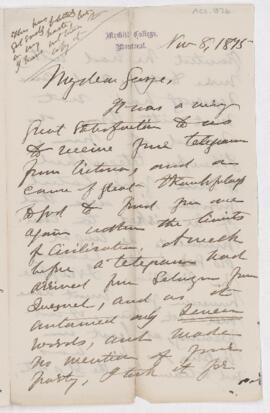 McGill College,
Montreal.
Nov 8, 1875
My dear George,
It was a very
great satisfaction to us
to receive your telegram
from Victoria, and a
cause of great thankfulness
to God to find you once
again within the limits
of civilisation. A week
before a telegram had
arrived from Selwyn from
Quesnel, and as it
contained only seven
words, and made
no mention of your
party, I took it for